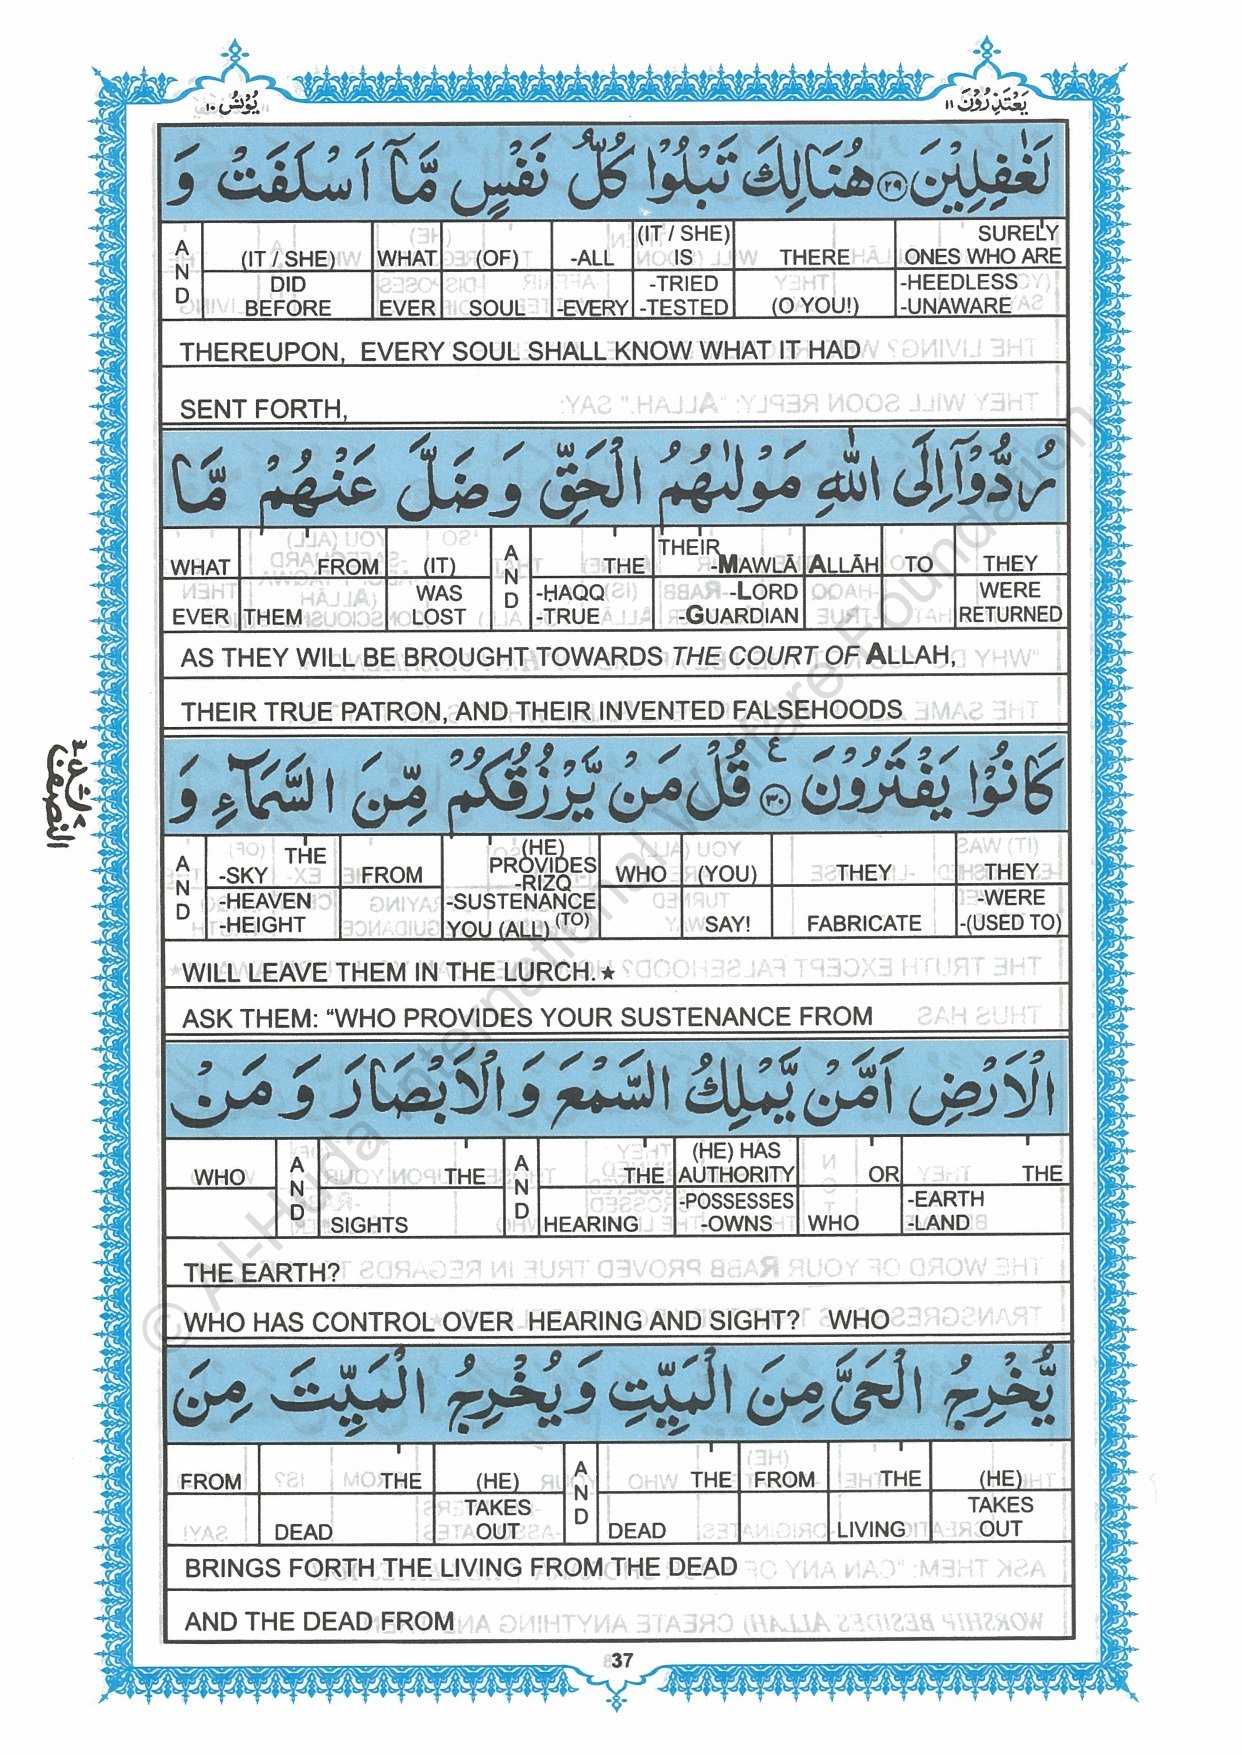 يَعْتَذِرُوْنَ ١١
يُوْنُسُ ١٠
لَغٰفِلِيْنَ ٢٩ هُنَالِكَ تَبْلُوْا كُلُّ نَفْسٍ مَّاۤ اَسْلَفَتْ وَ
SURELY ONES WHO ARE -HEEDLESS -UNAWARE
THERE (O YOU!)
(IT / SHE) IS -TRIED -TESTED
-ALL -EVERY
(OF) SOUL
WHAT EVER
(IT / SHE) DID BEFORE
AND
THEREUPON, EVERY SOUL SHALL KNOW WHAT IT HAD
SENT FORTH,
رُدُّوْۤا اِلَى اللّٰهِ مَوْلٰىهُمُ الْحَقِّ وَ ضَلَّ عَنْهُمْ مَّا
THEY WERE RETURNED
TO
ALLĀH
THEIR -MAWLĀ -LORD -GUARDIAN
THE -ḤAQQ -TRUE
AND
(IT) WAS LOST
FROM THEM
WHAT EVER
AS THEY WILL BE BROUGHT TOWARDS THE COURT OF ALLAH,
THEIR TRUE PATRON, AND THEIR INVENTED FALSEHOODS
كَانُوْا يَفْتَرُوْنَ ٣٠ ع قُلْ مَنْ يَّرْزُقُكُمْ مِّنَ السَّمَآءِ وَ
THEY -WERE -(USED TO)
THEY FABRICATE
(YOU) SAY!
WHO
(HE) PROVIDES -RIZQ -SUSTENANCE (TO) YOU (ALL)
FROM
THE -SKY -HEAVEN -HEIGHT
AND
WILL LEAVE THEM IN THE LURCH.★
ASK THEM: “WHO PROVIDES YOUR SUSTENANCE FROM
الْاَرْضِ اَمَّنْ يَّمْلِكُ السَّمْعَ وَ الْاَبْصَارَ وَ مَنْ
THE -EARTH -LAND
OR WHO
(HE) HAS AUTHORITY -POSSESSES -OWNS
THE HEARING
AND
THE SIGHTS
AND
WHO
THE EARTH?
WHO HAS CONTROL OVER HEARING AND SIGHT? WHO
يُّخْرِجُ الْحَيَّ مِنَ الْمَيِّتِ وَ يُخْرِجُ الْمَيِّتَ مِنَ
(HE) TAKES OUT
THE LIVING
FROM
THE DEAD
AND
(HE) TAKES OUT
THE DEAD
FROM
BRINGS FORTH THE LIVING FROM THE DEAD
AND THE DEAD FROM
37
© Al-Huda International Welfare Foundation